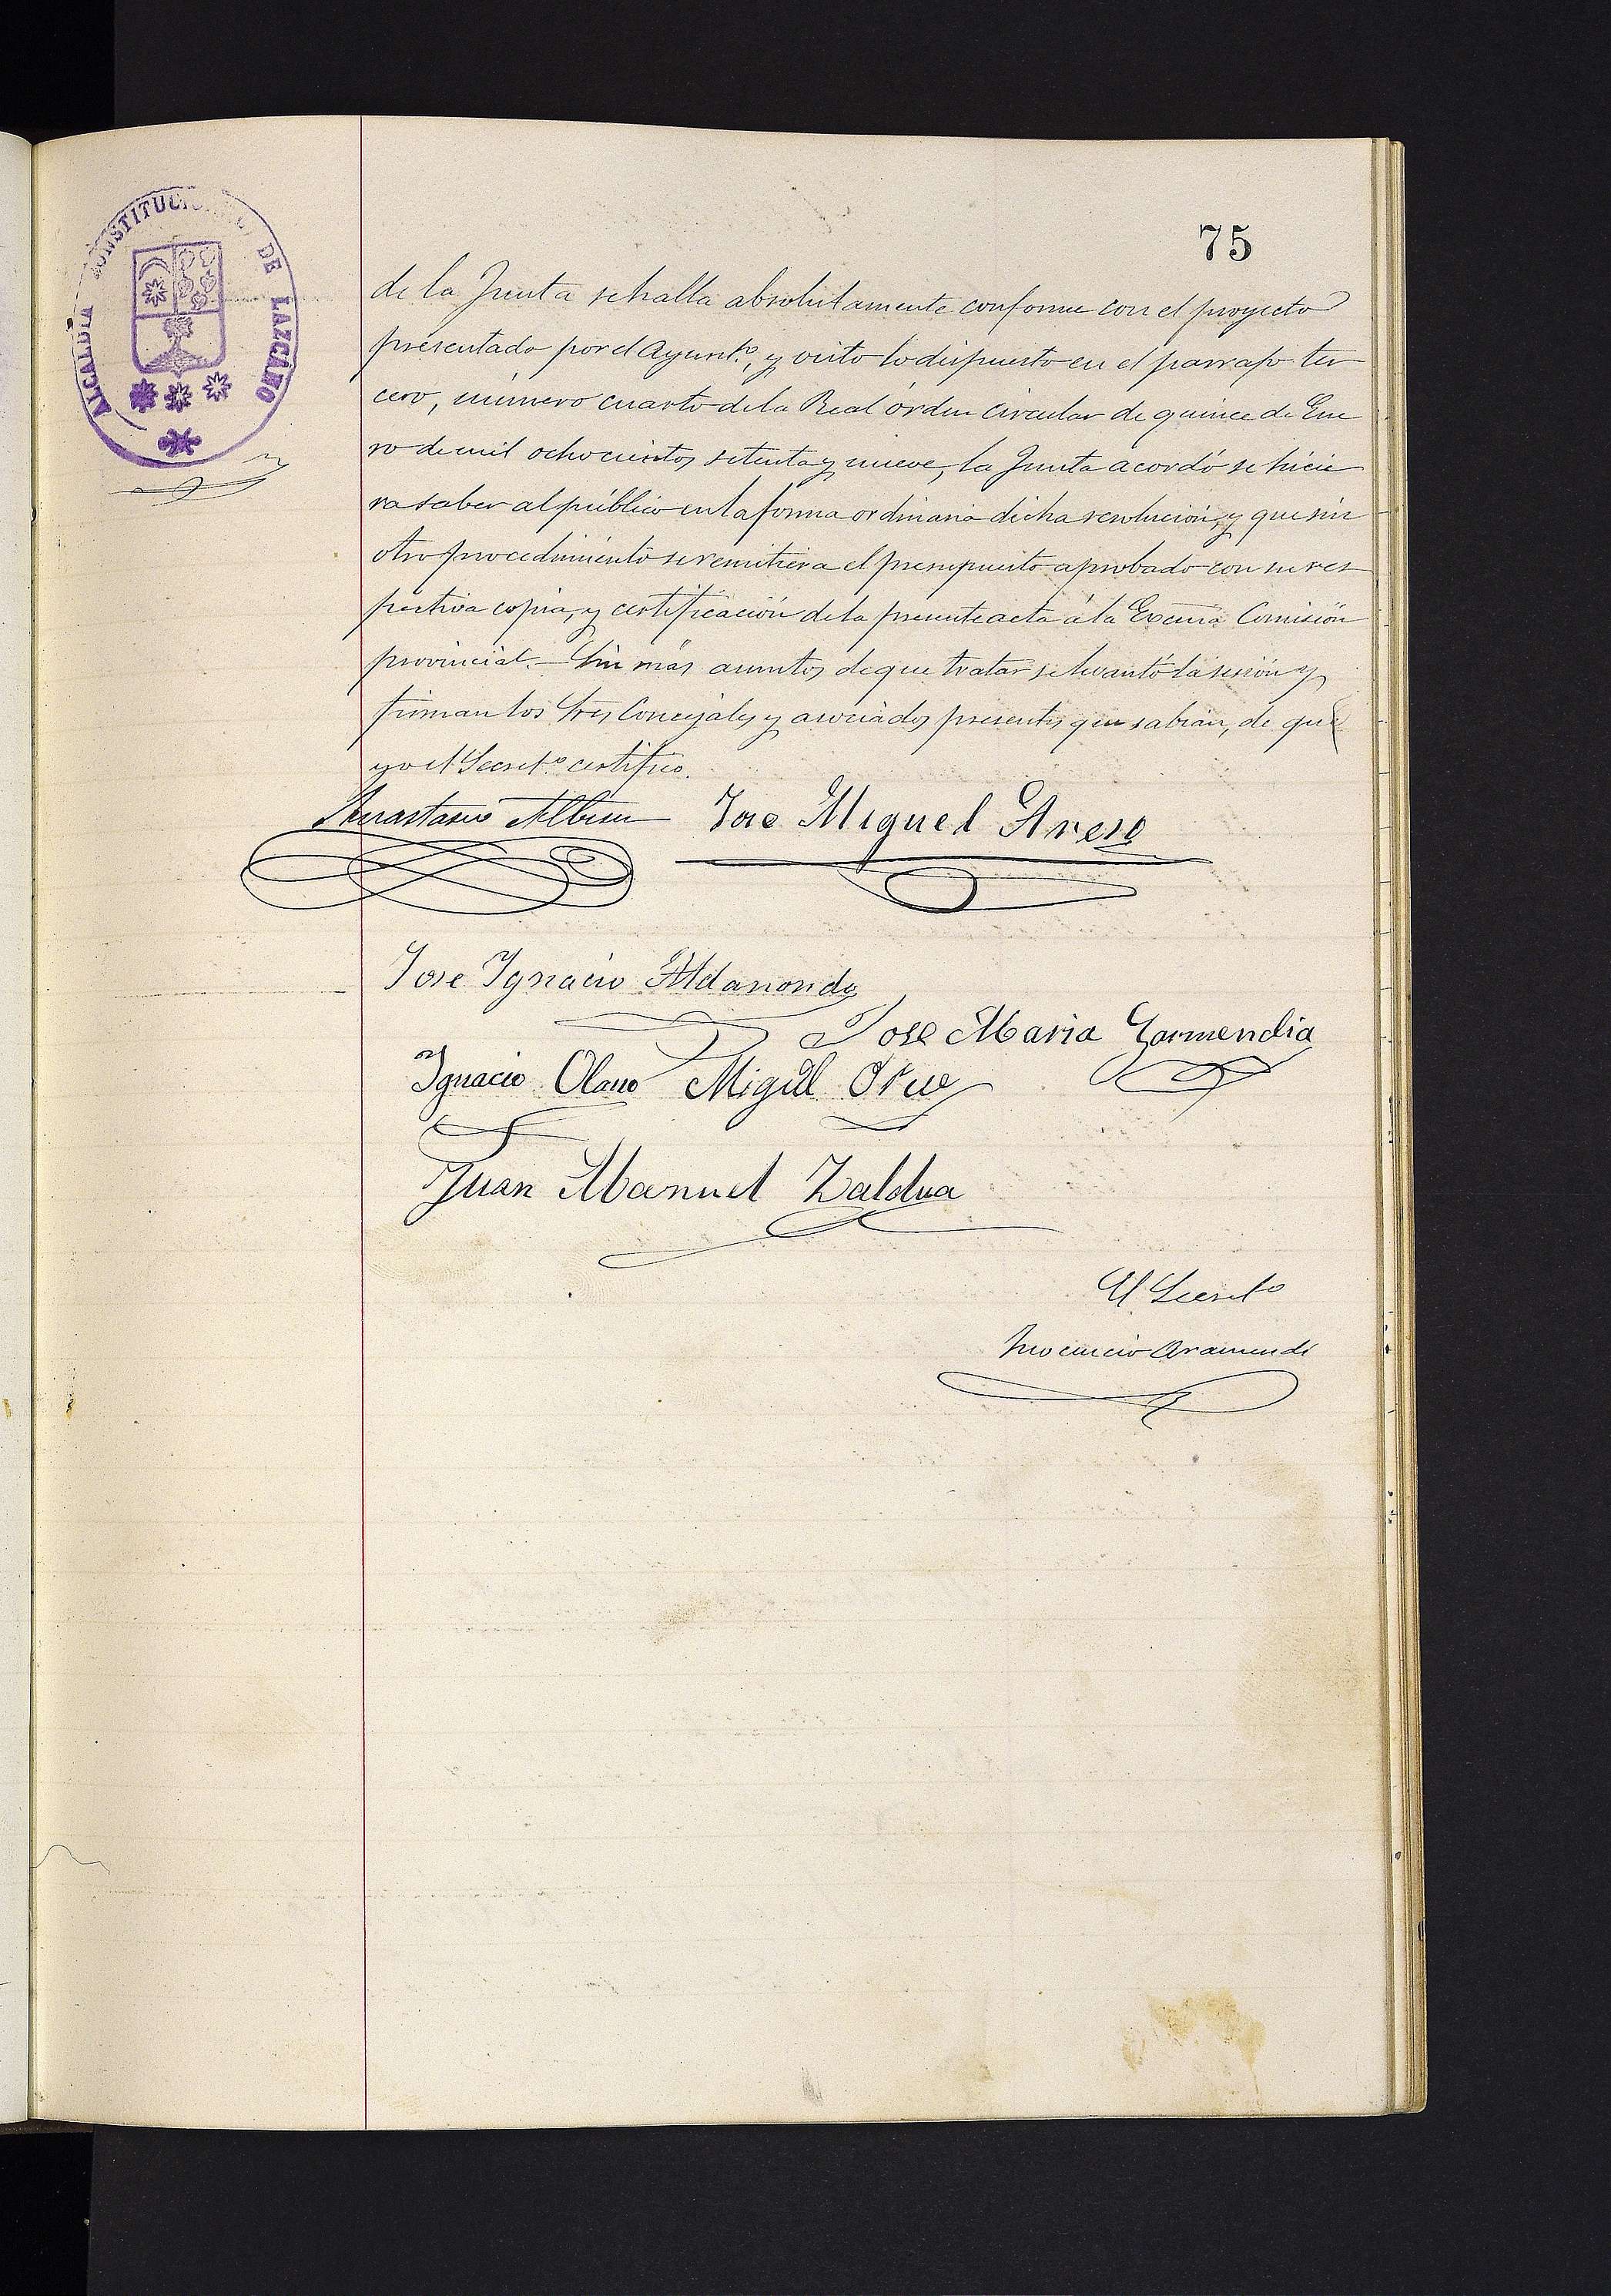 75
ALCALDIA CONSTITUCIONAL DE LAZCANO
de la Junta se halla absolutamente conforme con el proyecto
presentado por el Ayunt.º, y visto lo dispuesto en el parrafo ter
cero, número cuarto de la Real órden circular de quince de Ene
ro de mil ochocientos setenta y nueve, la Junta acordó se hicie
ra saber al público en la forma ordinaria dicha resolución, y que sin
otro procedimiento se remitiera el presupuesto aprobado con su res
pectiva copia, y certificación de la presente acta á la Excma Comisión
provincial. — Sin más asuntos de que tratar se levantó la sesión y
firman los Sres Concejales y asociados presentes que sabian, de que
yo el Secret.º certifico.
Anastasio Albisu Jose Miguel Areso
Jose Ignacio Aldanondo
Jose Maria Garmendia
Ignacio Olano Miguel Orue
Juan Manuel Zaldua
El Secretº
Inocencio Aramendi